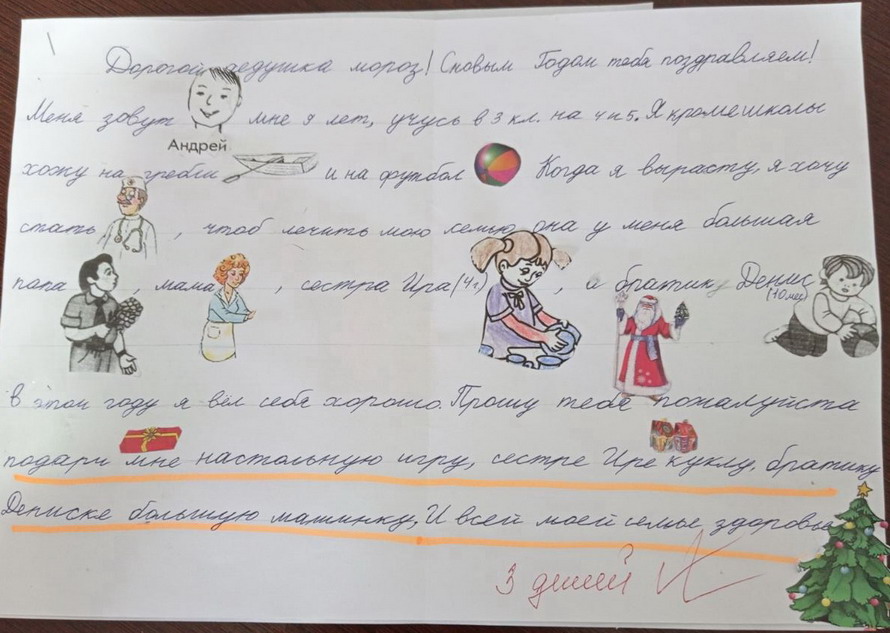 Дорогой дедушка мороз! Сновым Годом тебя поздравляем!
Меня зовут мне 9 лет, учусь в 3 кл. на 4 и 5. Я кроме школы
Андрей
хожу на гребли и на футбол Когда я вырасту, я хочу
стать, чтоб лечить мою семью она у меня большая
папа, мама, сестра Ира (4г), и братик Денис
(10 мес)
в этом году я вел себя хорошо. Прошу тебя пожалуйста
подари мне настольную игру, сестре Ире куклу, братику
Дениске большую машинку, И всей моей семье здоровье
3 детей